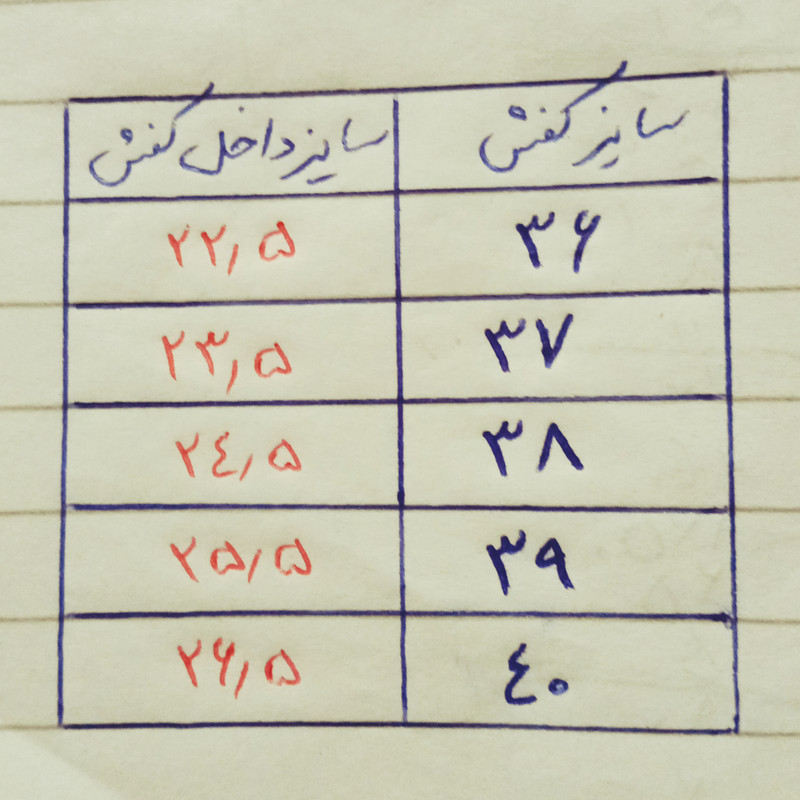 سایز کفش سایز داخل کفش
۳۶ ۲۲٫۵
۳۷ ۲۳٫۵
۳۸ ۲۴٫۵
۳۹ ۲۵٫۵
۴۰ ۲۶٫۵